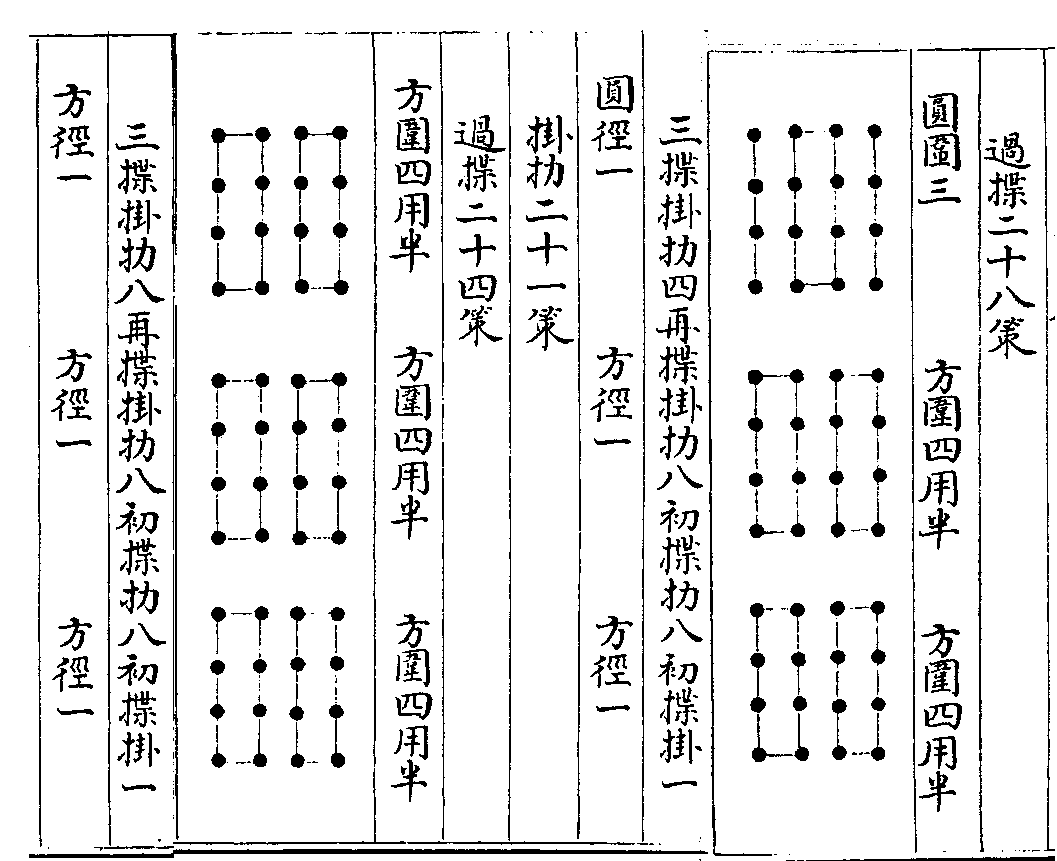 過揲二十八策
圓圍三 方圍四用半 方圍四用半
三揲掛扐四再揲掛扐八初揲扐八初揲掛一
圓徑一 方徑一 方徑一
掛扐二十一策
過揲二十四策
方圍四用半 方圍四用半 方圍四用半
三揲掛扐八再揲掛扐八初揲扐八初揲掛一
方徑一 方徑一 方徑一